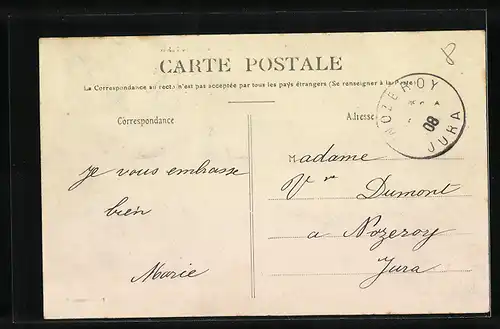 8
CARTE POSTALE
La Correspondance au recto n'est pas acceptée par tous les pays étrangers (Se renseigner à la Poste)
NOZEROY
08
JURA
Correspondance
Adresse
Je vous embrasse
bien
Marie
Madame
Vve Dumont
a Nozeroy
Jura